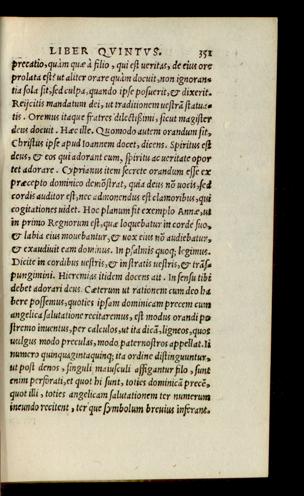 LIBER QVINTVS. 351
precatio, quàm quæ à filio, qui est ueritas, de eius ore
prolata est? ut aliter orare quàm docuit, non ignoran-
tia sola sit, sed culpa, quando ipse posuerit, & dixerit.
Reijcitis mandatum dei, ut traditionem uestrā statua-
tis. Oremus itaque fratres dilectißimi, sicut magister
deus docuit. Hæc ille. Quomodo autem orandum sit,
Christus ipse apud Ioannem docet, dicens. Spiritus est
deus, & eos qui adorant eum, spiritu ac ueritate opor
tet adorare. Cyprianus item secrete orandum esse ex
præcepto dominico demōstrat, quia deus nō uocis, sed
cordis auditor est, nec admonendus est clamoribus, qui
cogitationes uidet. Hoc planum fit exemplo Annæ, ut
in primo Regnorum est, quæ loquebatur in corde suo,
& labia eius mouebantur, & uox eius nō audiebatur,
& exaudiuit eam dominus. In psalmis quoq; legimus.
Dicite in cordibus uestris, & in stratis uestris, & trās
pungimini. Hieremias itidem docens ait. In sensu tibi
debet adorari deus. Cæterum ut rationem cum deo ha
bere possemus, quoties ipsam dominicam precem cum
angelica salutatione recitaremus, est modus orandi po
stremo inuentus, per calculos, ut ita dicā, ligneos, quos
uulgus modo preculas, modo paternostros appellat. Ii
numero quinquagintaquinq; ita ordine distinguuntur,
ut post denos, singuli maiusculi affigantur filo, sunt
enim perforati, et quot hi sunt, toties dominicā precē,
quot illi, toties angelicam salutationem ter numerum
ineundo recitent, ter'que symbolum breuius inserant.